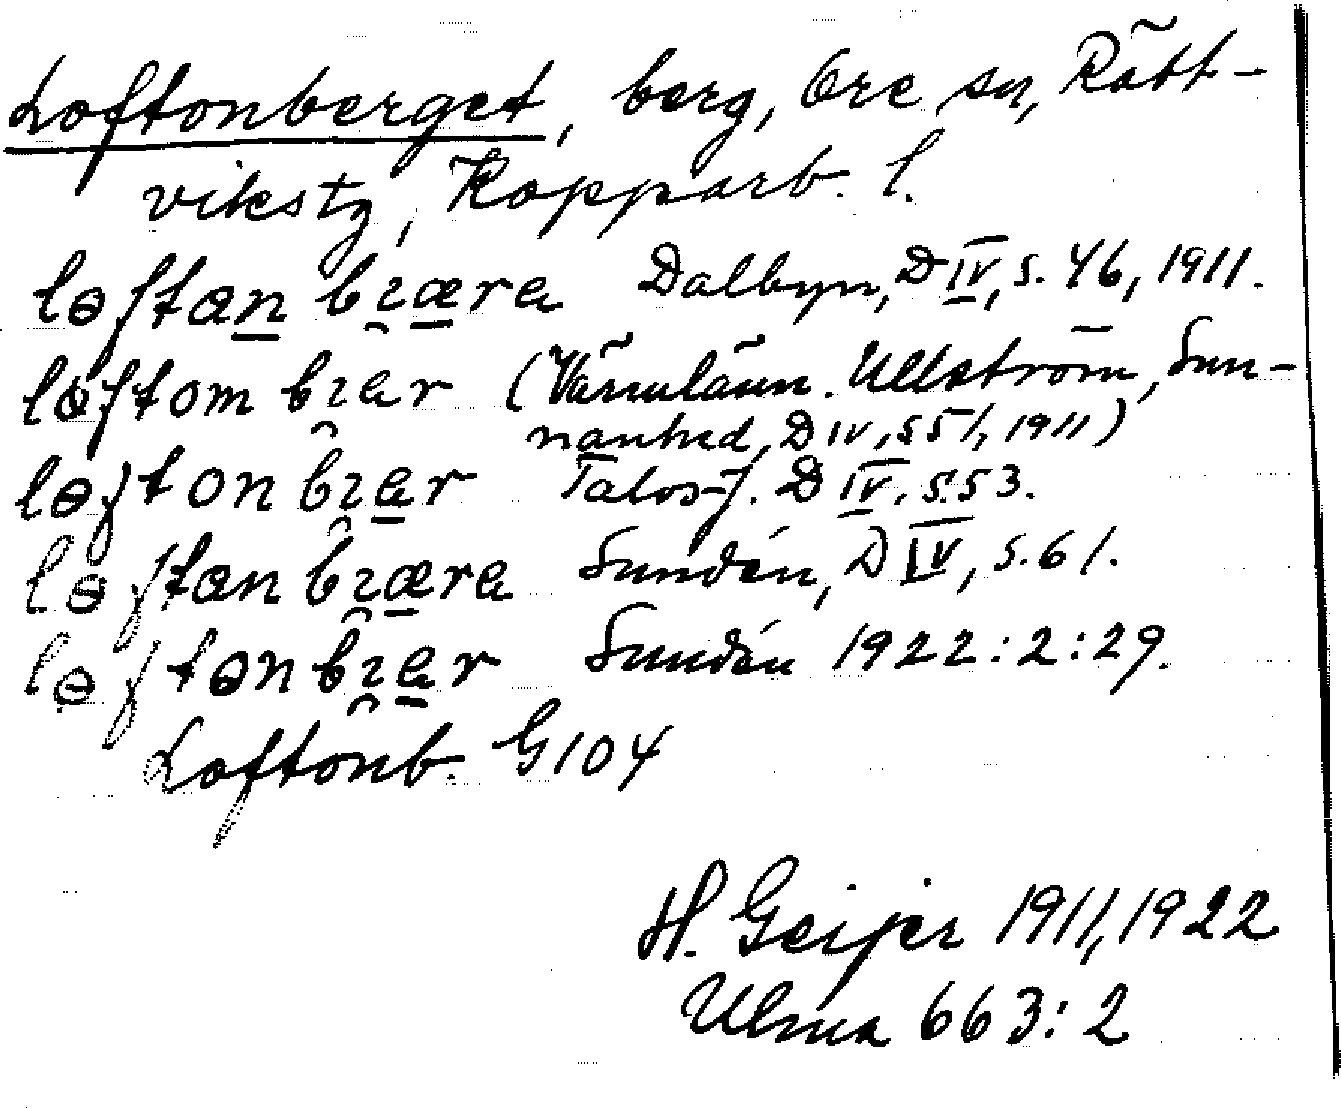 Loftonberget, berg, Ore sn, Rätt-
vikstg, Kopparb. l.
lɵftan bɿæra Dalbyn, D IV, s. 46, 1911.
lɵftom bɿar (Värmlänn. Ullström, Sun-
nanhed, D IV, s 51, 1911)
lɵfton bɿar D IV, s. 53.
lɵftan bɿæra Sundén, D IV, s. 61.
lɵftɵn bɿar Sundén 1922:2:29.
Loftonb. G104
H. Geijer 1911, 1922
Ulma 663:2